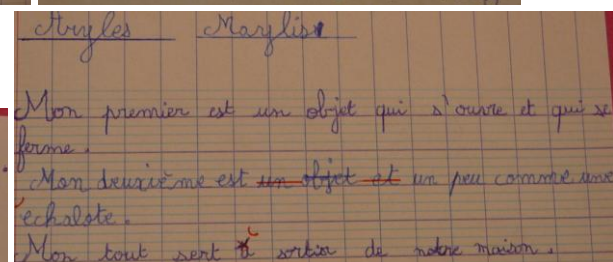 Maylis
Mon premier est un objet qui s'ouvre et qui se
ferme.
Mon deuxième est un objet et un peu comme une
échalote.
Mon tout sert à sortir de notre maison.